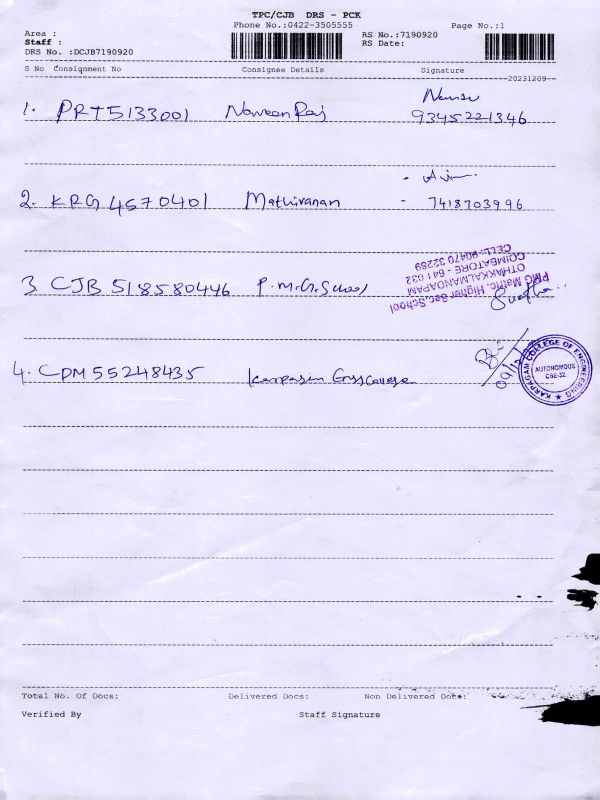 TPC/CJB DRS - PCK
Phone No.:0422-3505555 Page No.:1
Area :
Staff :
DRS No. :DCJB7190920
RS No.:7190920
RS Date:
S No Consignment No Consignee Details Signature
20231209
1. PRT5133001 Naveen Raj 9345221346
2. KRG 4570401 Mathivanan - 7418703996
3 CJB 518580446 P.M.G.School
PMG Matric. Higher Sec.School
OTHAKKALMANDAPAM
COIMBATORE - 641 032
CELL: 90470 32289
4. CDM 55248435 Karpagam Engg College
KARPAGAM COLLEGE OF ENGINEERING
AUTONOMOUS
CBE-32.
Total No. Of Docs: Delivered Docs: Non Delivered Docs:
Verified By Staff Signature